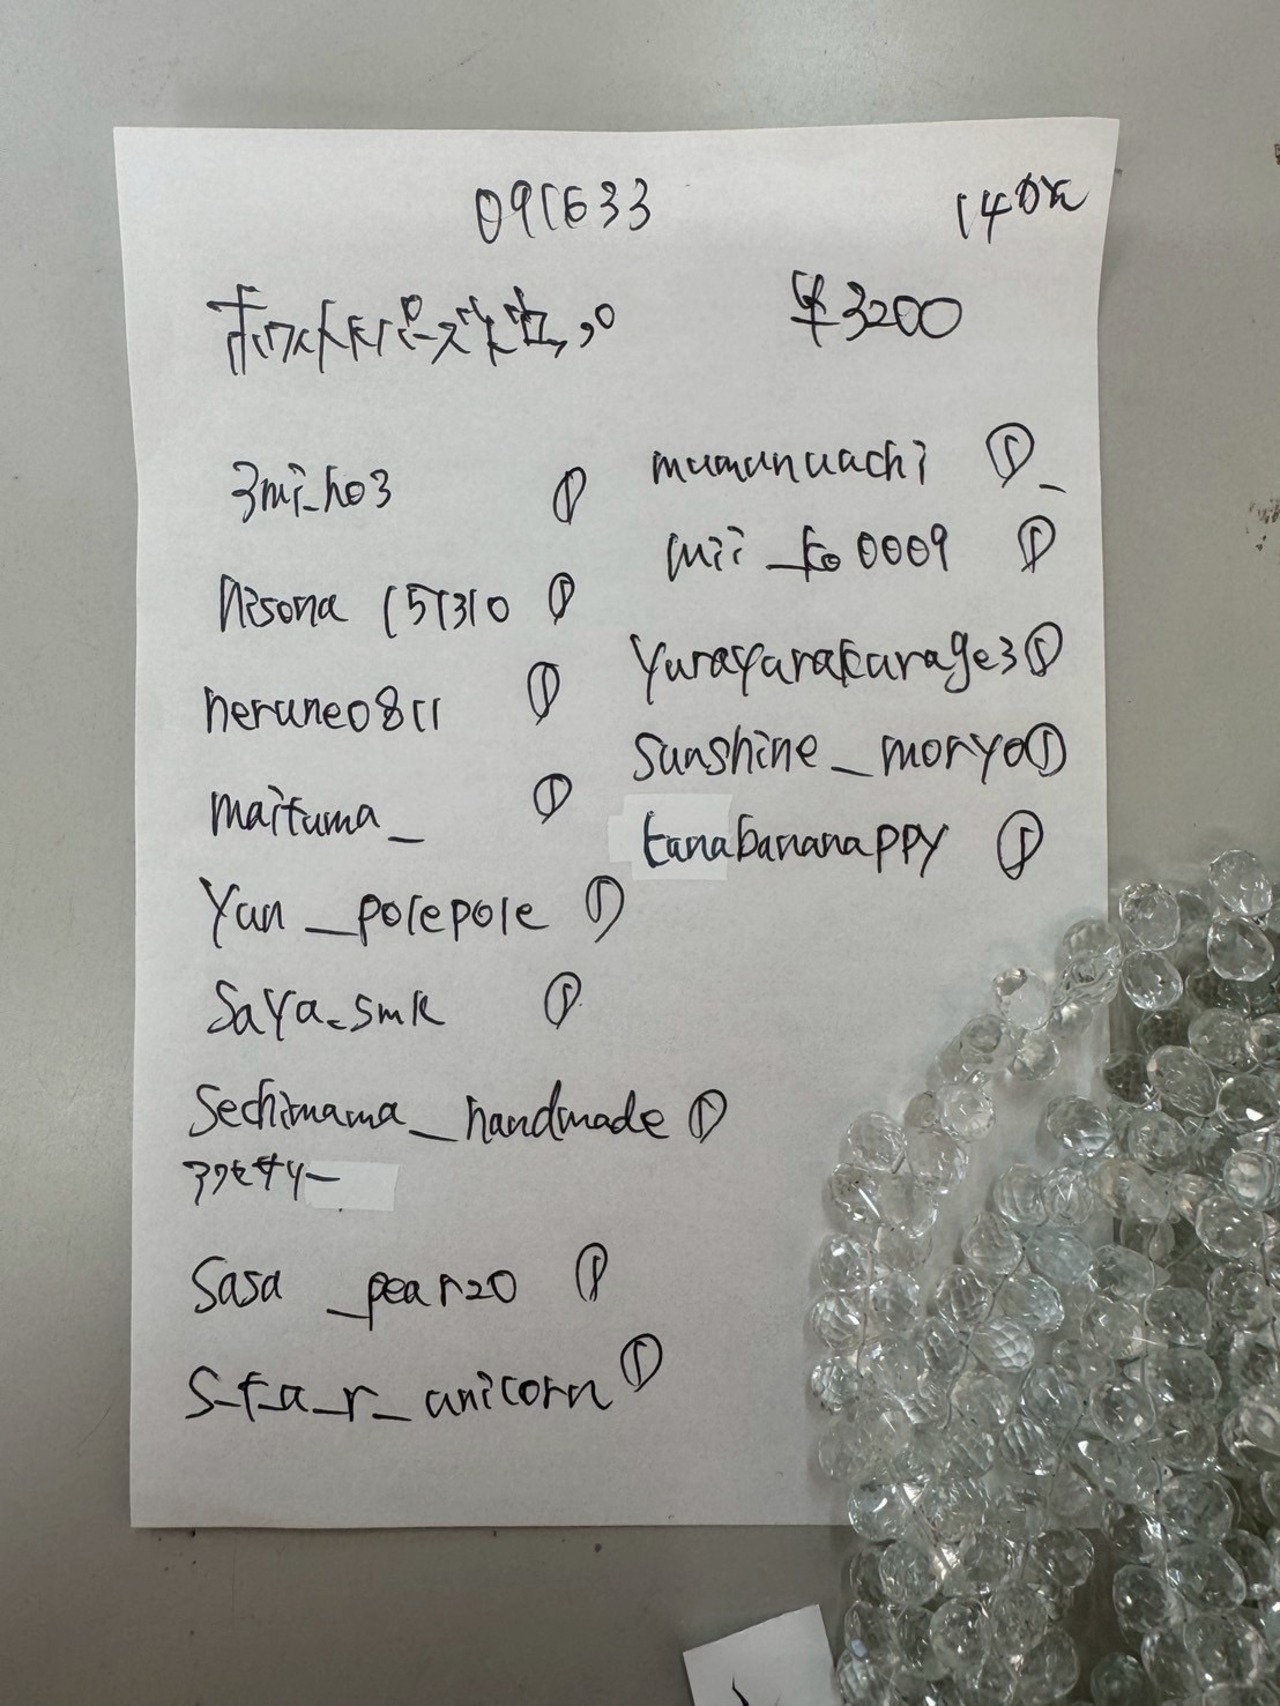 091633
140点
¥3200
3mi_ho3 ①
nisona 151310 ①
nerune0811 ①
maituma_ ①
Yun_polepole ①
saya_smk ①
sechimama_handmade ①
アクセサリー
sasa _pear20 ①
s_t_a_r_unicorn ①
mumunuachi ①_
mii_ko0009 ①
yurayurakurage3 ①
sunshine_moryo ①
tanabananappy ①